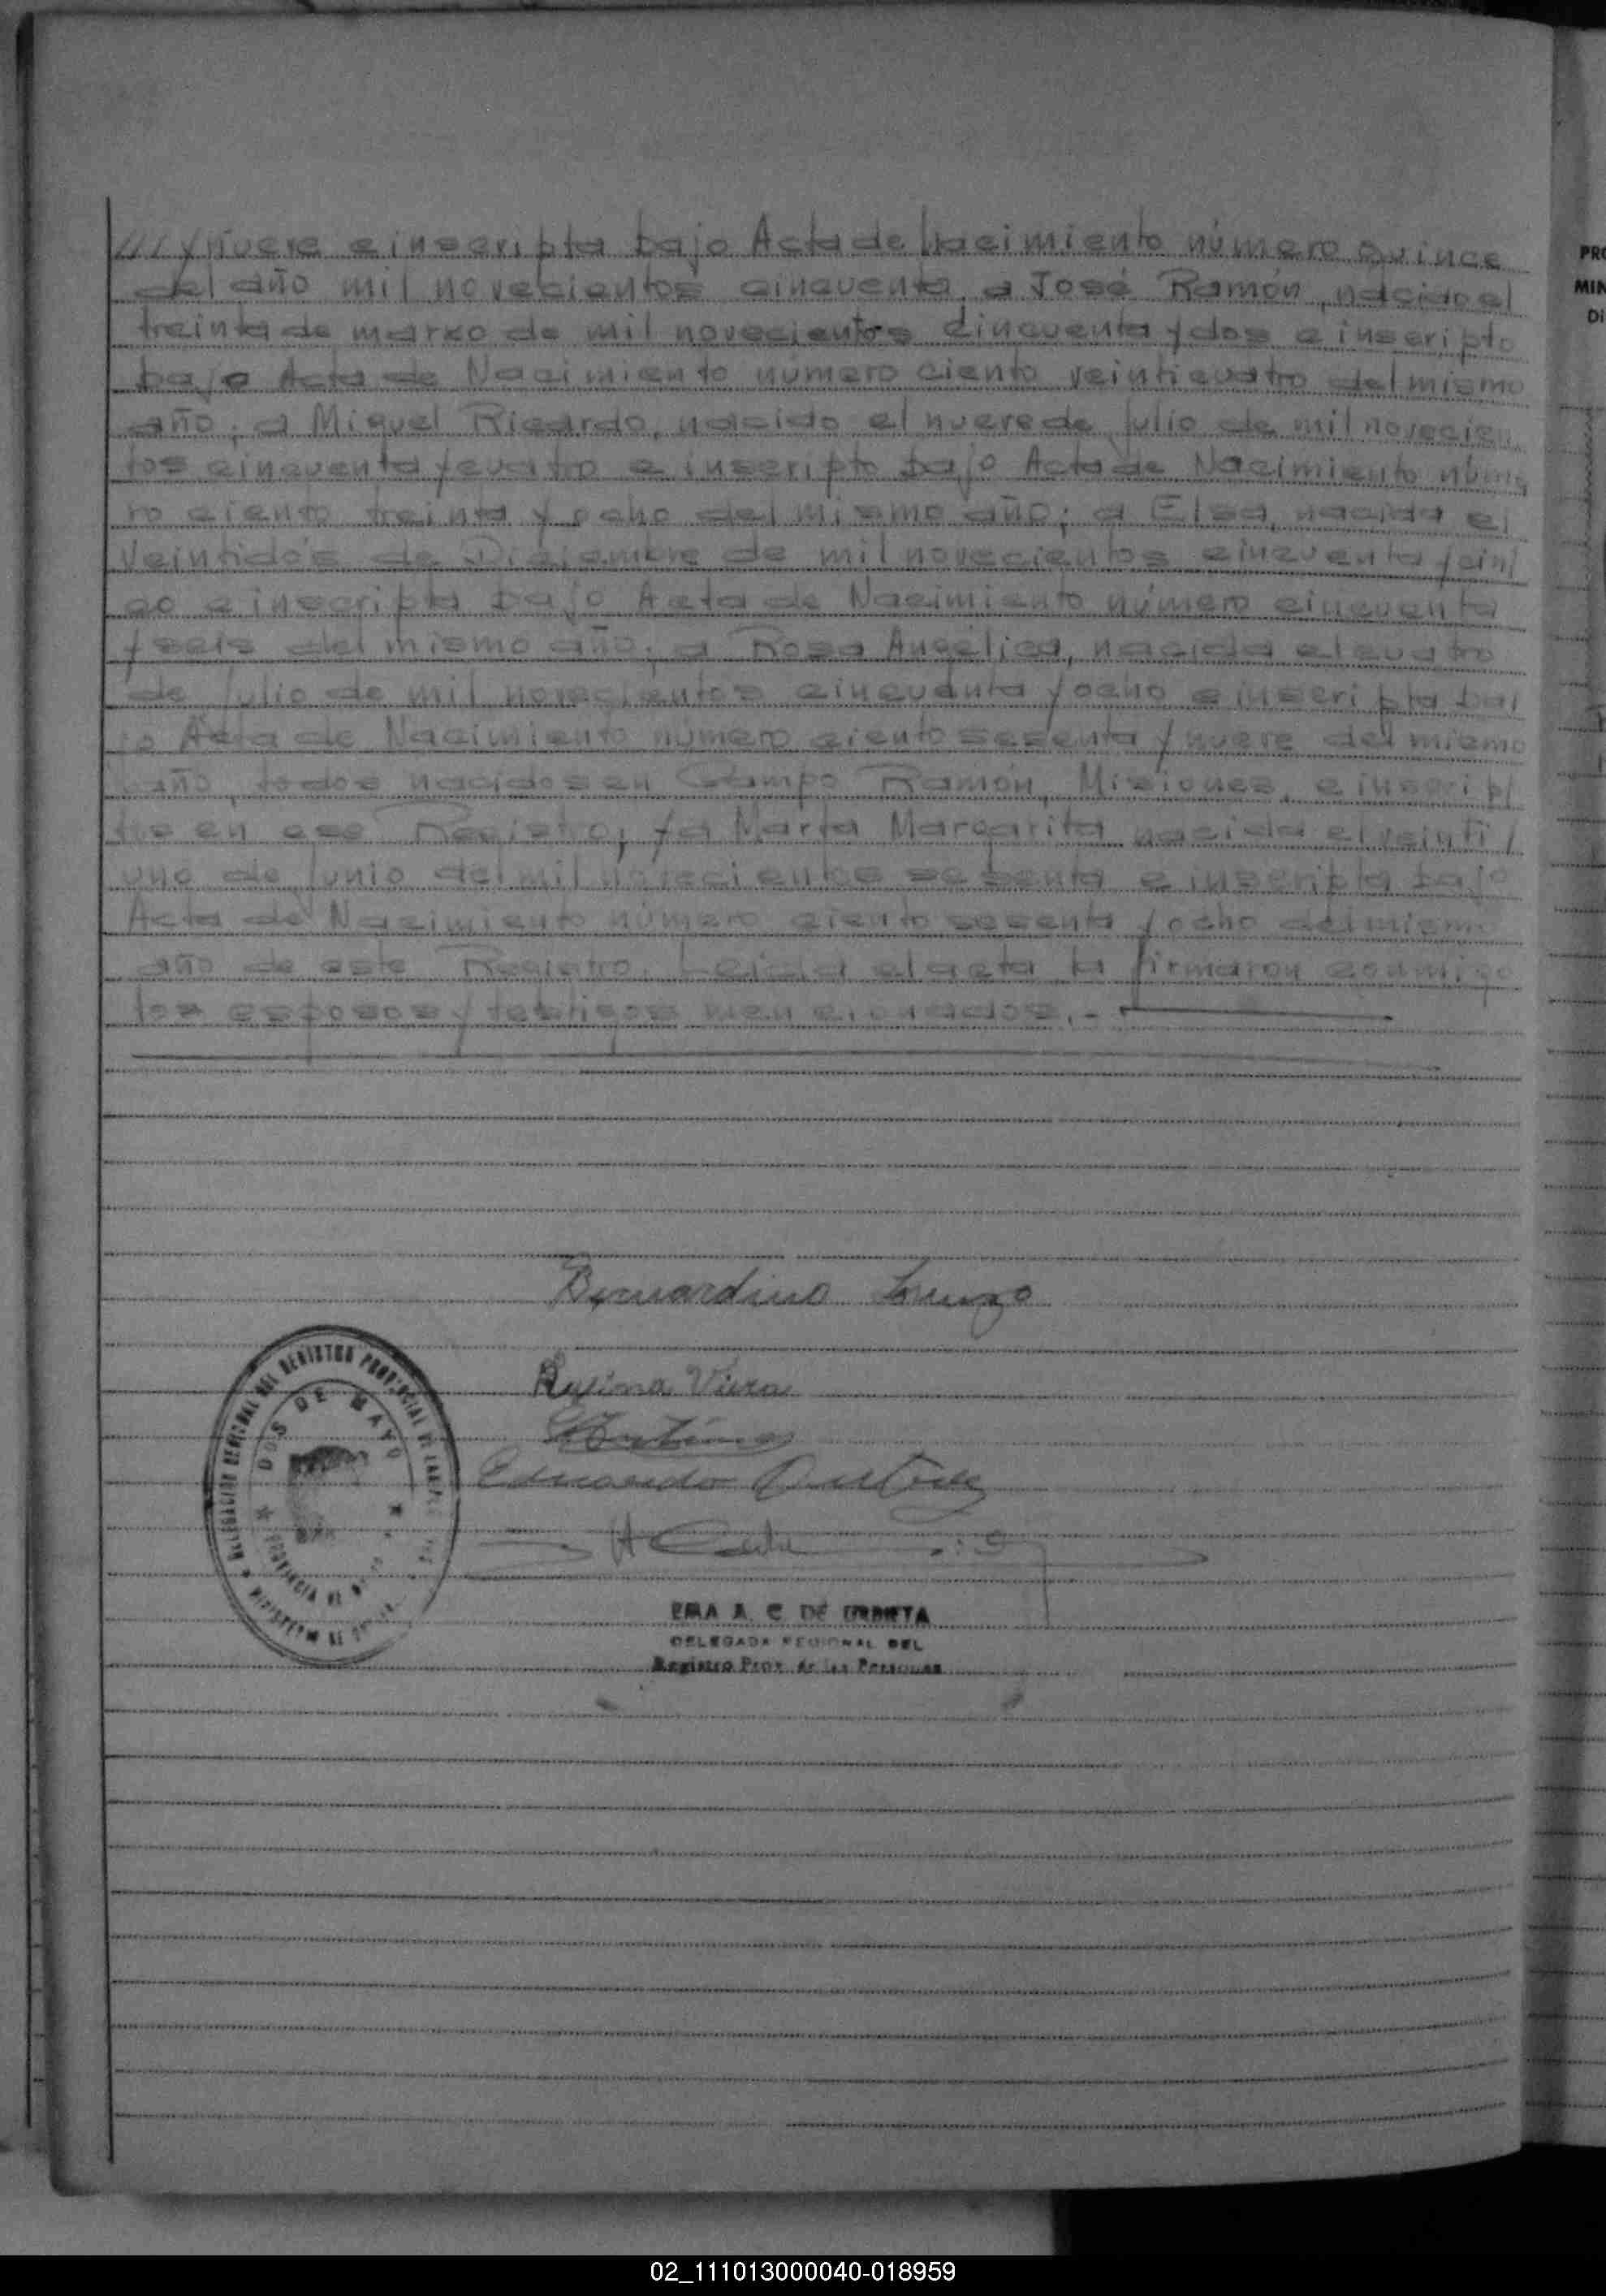 /// y nueve e inscripta bajo Acta de Nacimiento número quince
del año mil novecientos cincuenta, a José Ramón, nacido el
treinta de marzo de mil novecientos cincuenta y dos e inscripto
bajo Acta de Nacimiento número ciento veinticuatro del mismo
año; a Miguel Ricardo, nacido el nueve de Julio de mil novecien
tos cincuenta y cuatro e inscripto bajo Acta de Nacimiento núme
ro ciento treinta y ocho del mismo año; a Elsa, nacida el
veintidós de Diciembre de mil novecientos cincuenta y cin/
co e inscripta bajo Acta de Nacimiento número cincuenta
y seis del mismo año; a Rosa Angélica, nacida el cuatro
de Julio de mil novecientos cincuenta y ocho e inscripta ba/
jo Acta de Nacimiento número ciento sesenta y nueve del mismo
año, todos nacidos en Campo Ramón, Misiones, e inscrip/
tos en ese Registro; y a Marta Margarita nacida el veinti/
uno de Junio del mil novecientos sesenta e inscripta bajo
Acta de Nacimiento número ciento sesenta y ocho del mismo
año de este Registro. Leída el acta la firmaron conmigo
los esposos y testigos mencionados.-
Bernardino Lorenzo
DELEGACION REGIONAL DEL REGISTRO PROVINCIAL DE LAS
DOS DE MAYO
PROVINCIA DE
MINISTERIO DE
Eduardo
EMA A. C. DE URRIETA
DELEGADA REGIONAL DEL
Registro Prov. de las Personas
PRO
MIN
Di
02_111013000040-018959